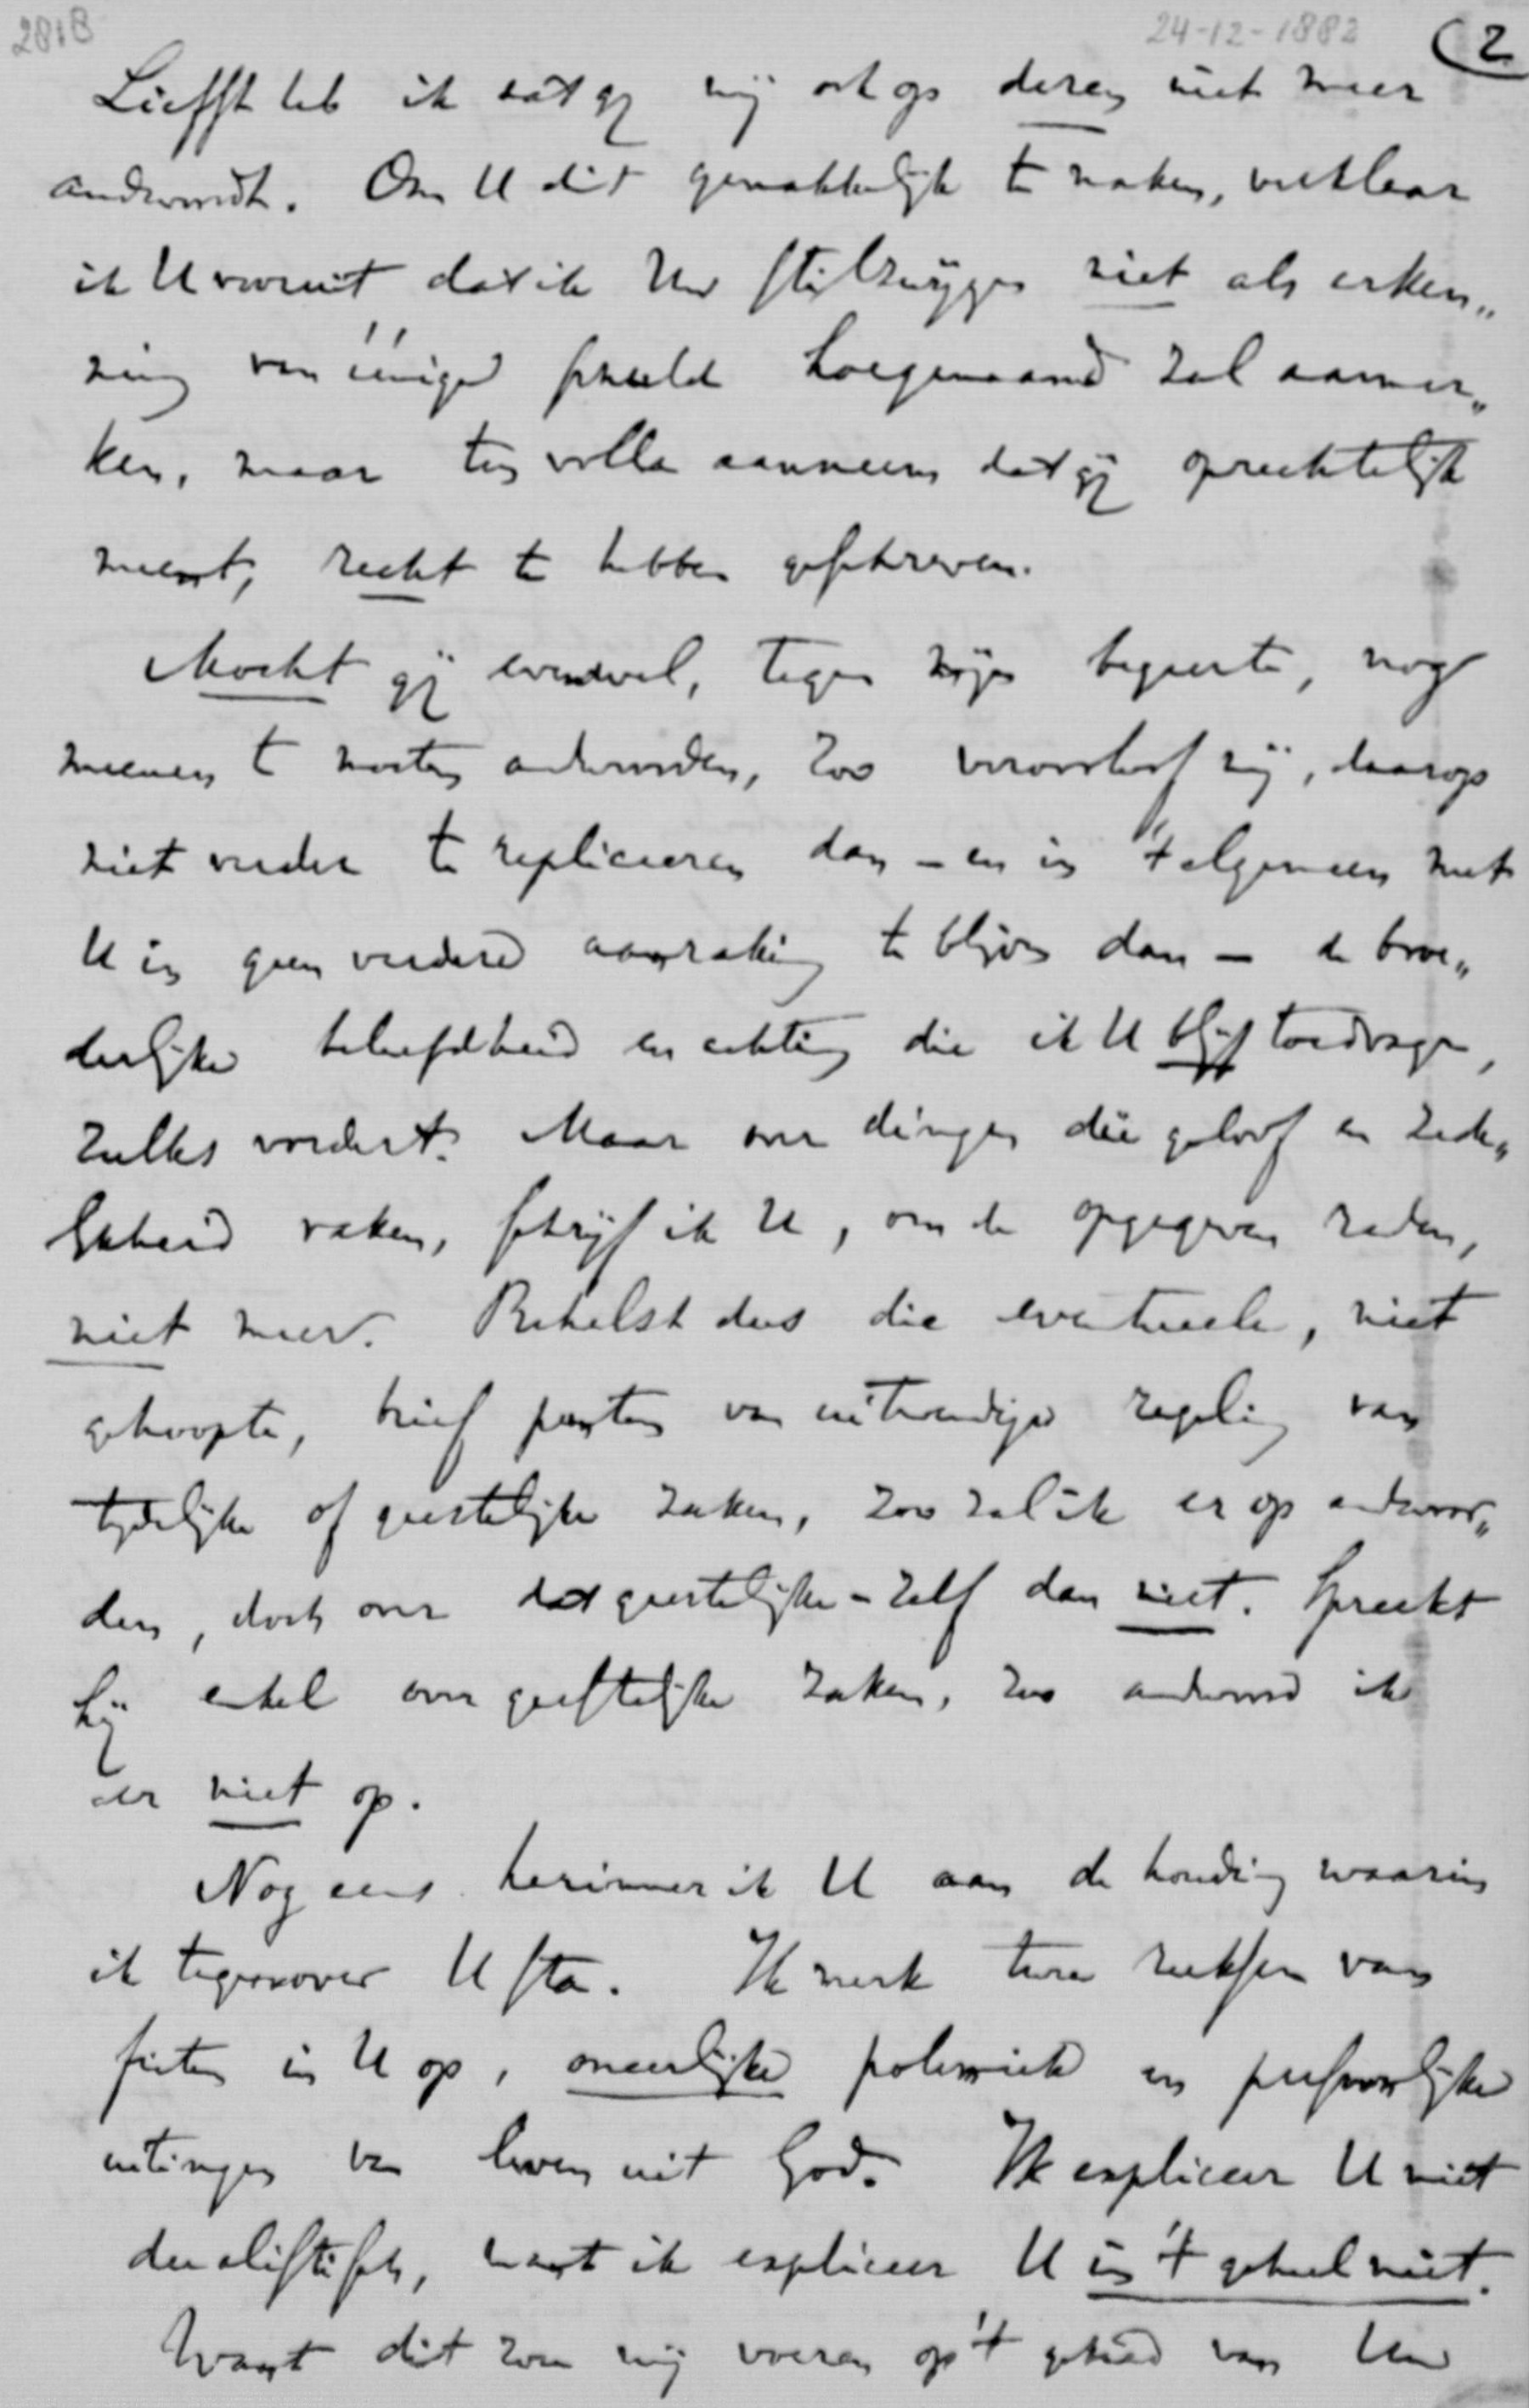 2818 24-12-1882 (2
Liefst heb ik dat gij mij ook op dezen niet meer
andwoordt. Om U dit gemakkelijk te maken, verklaar
ik U vooruit dat ik Uw stilzwijgen niet als erken„
ning van éénige schuld hoegenaamd zal aanmer„
ken, maar ten volle aanneem dat gij oprechtelijk
meent, recht te hebben geschreven.
Mocht gij evenwel, tegen mijn begeerte, nog
meenen te moeten andwoorden, zoo veroorloof mij, daarop
niet verder te repliceeren dan – en in 't algemeen met
U in geen verdere aanraking te blijven dan – de broe„
derlijke beleefdheid en achting die ik U blijf toedragen,
zulks vordert. Maar over dingen die geloof en zede„
lijkheid raken, schrijf ik U, om de opgegeven reden,
niet meer. Behelst dus die eventueele, niet
gehoopte, brief punten van uitwendige regeling van
tijdelijke of geestelijke zaken, zoo zal ik er op andwoor„
den, doch over dat geestelijke-zelf dan niet. Spreekt
hij enkel over geestelijke zaken, zoo andwoord ik
er niet op.
Nog eens herinner ik U aan de houding waarin
ik tegenover U sta. Ik merk twee reeksen van
feiten in U op, oneerlijke polemiek en persoonlijke
uitingen van leven uit God. Ik expliceer U niet
dualistisch, want ik expliceer U in 't geheel niet.
Want dit zou mij voeren op 't gebied van Uw